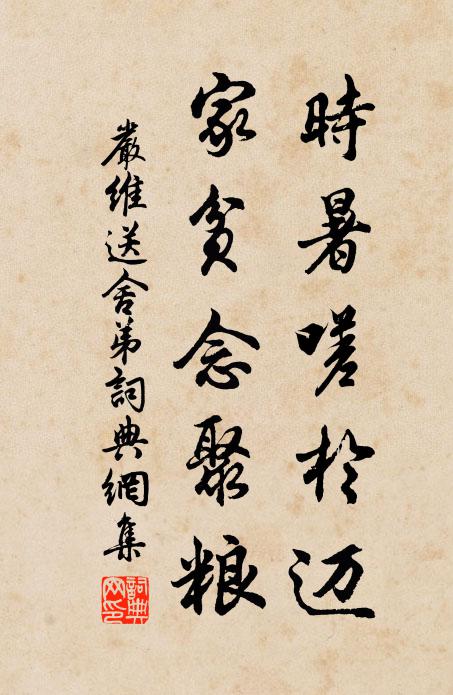 時暑嗟於迈
家貧念聚粮
嚴維送舍弟詞典網集
詞典网印